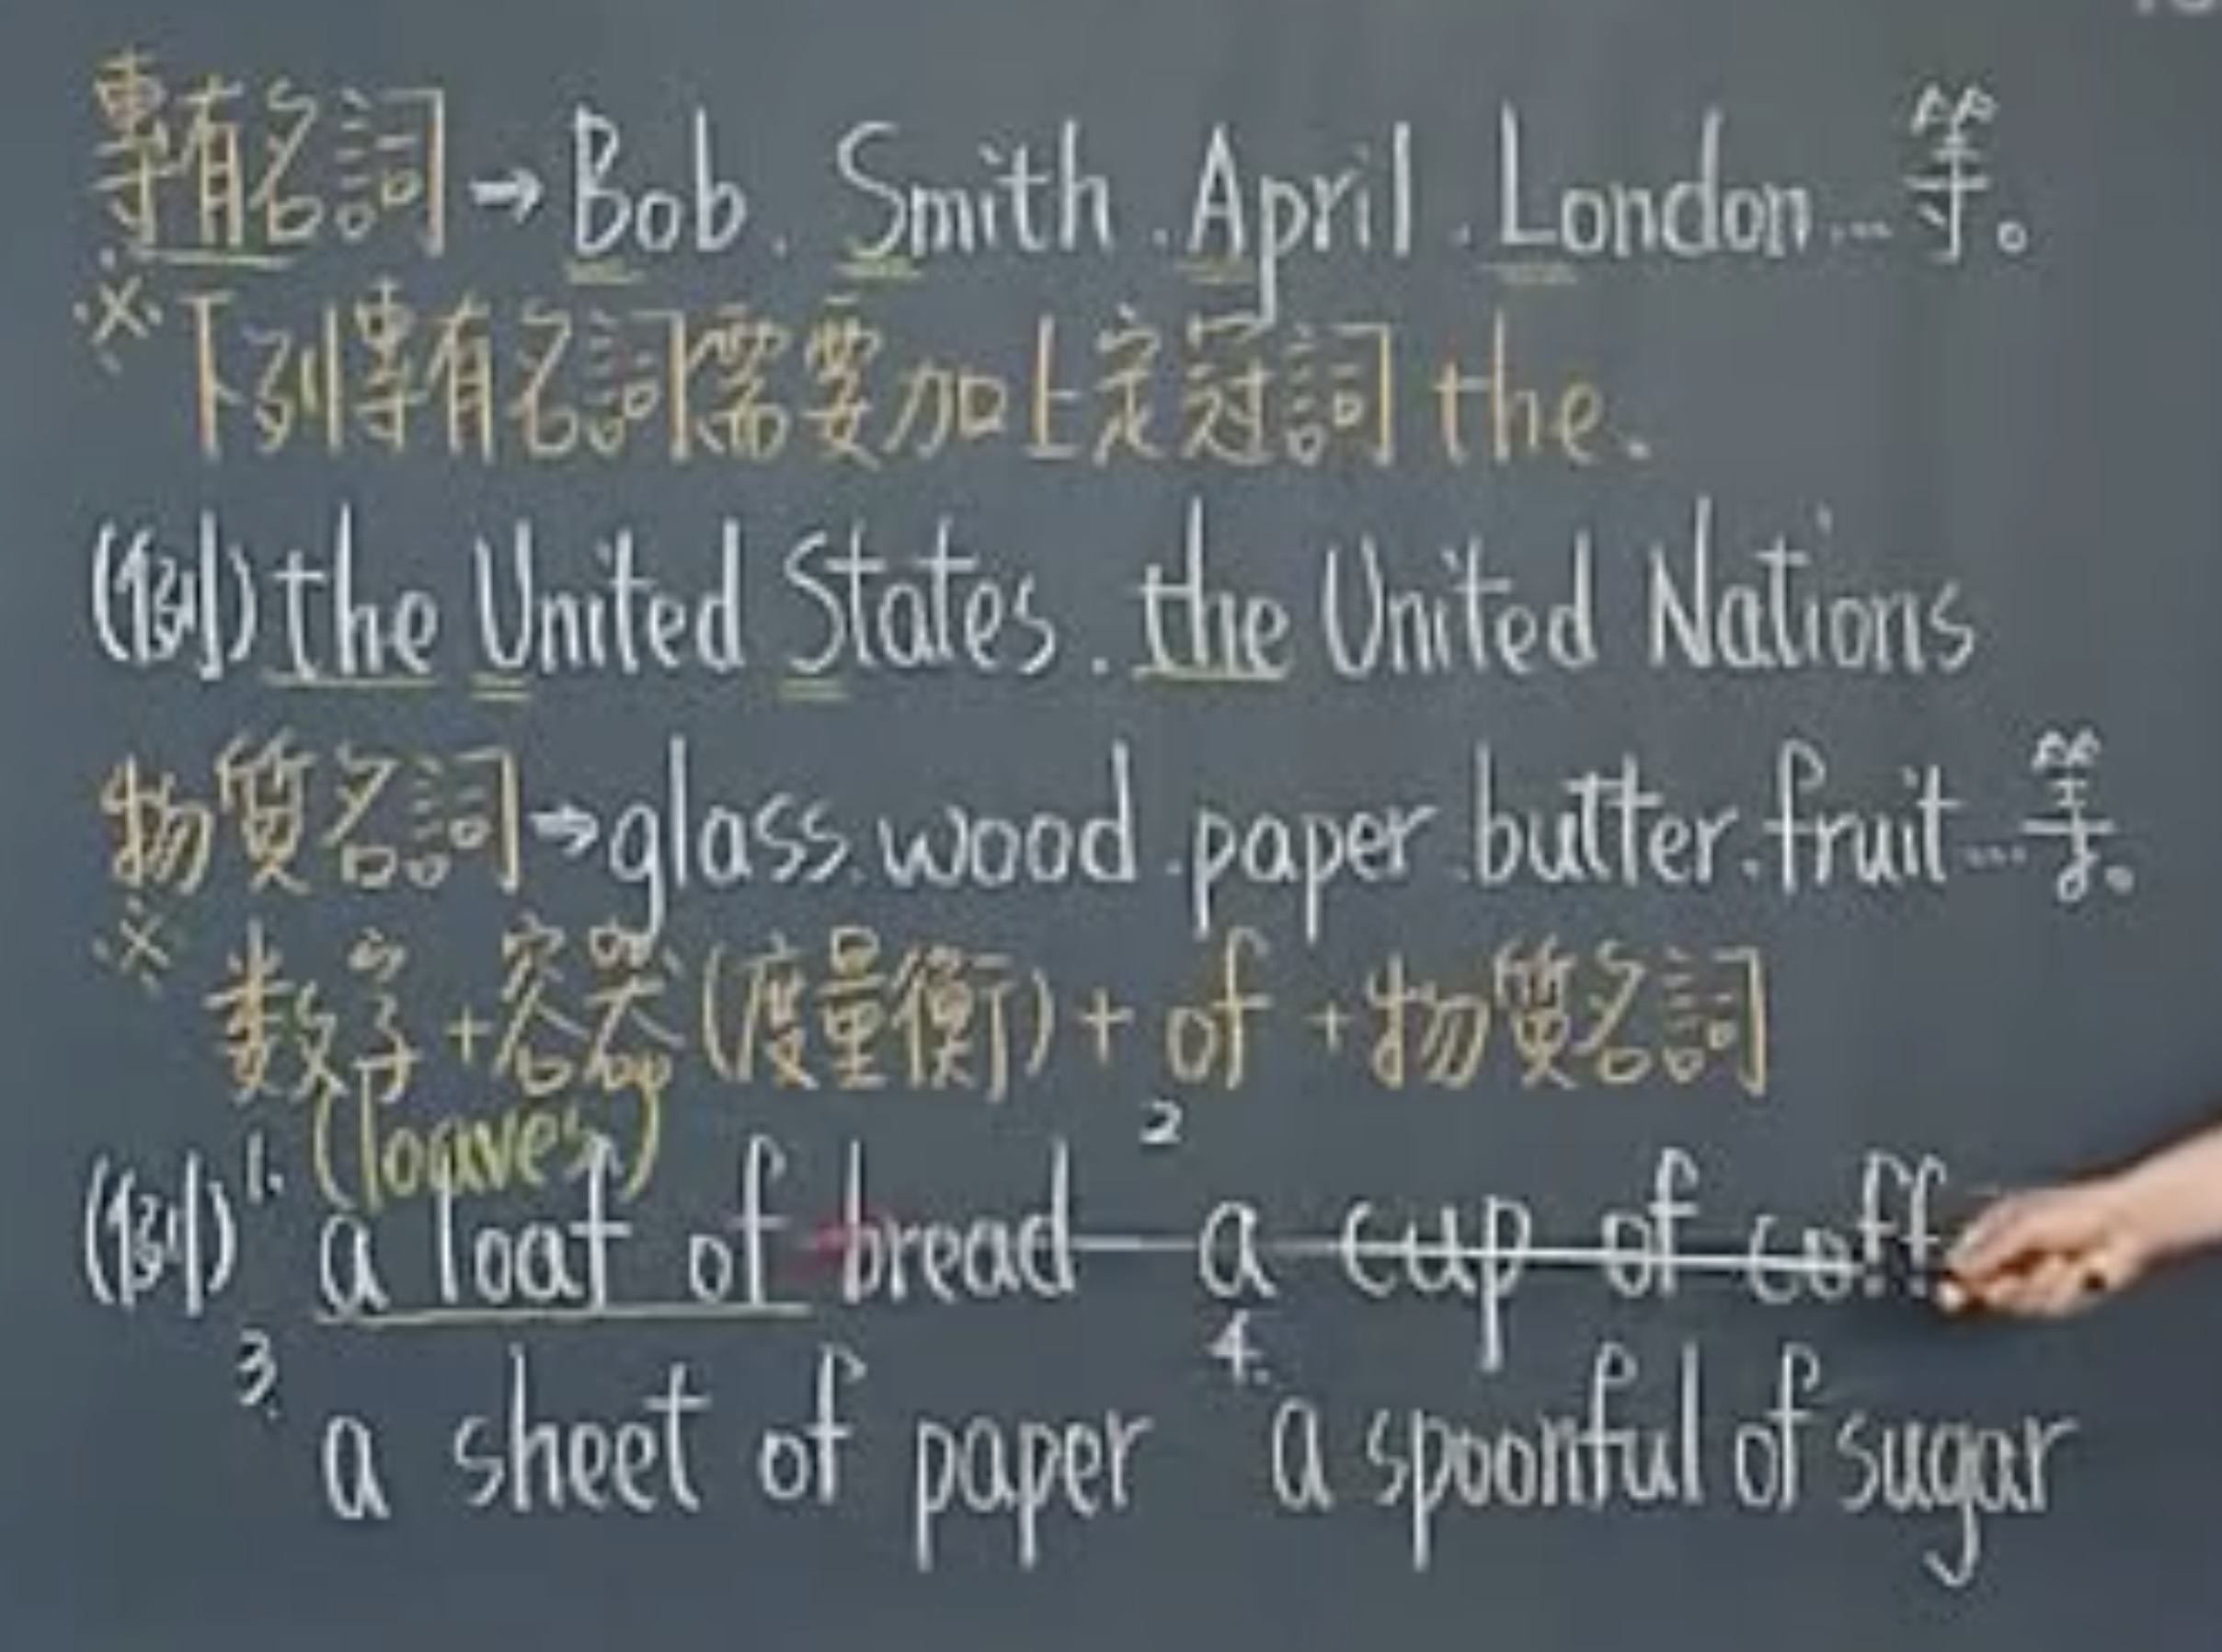 專有名詞→Bob. Smith. April. London...等。
※下列專有名詞需要加上定冠詞 the.
(例) the United States. the United Nations
物質名詞→glass.wood.paper.butter.fruit...等。
※数字+容器(度量衡)+ of +物質名詞
(loaves)
(例) 1. a loaf of bread 2 a cup of coff
3. a sheet of paper 4. a spoonful of sugar